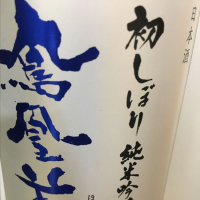 日本酒
初しぼり
純米吟
鳳凰